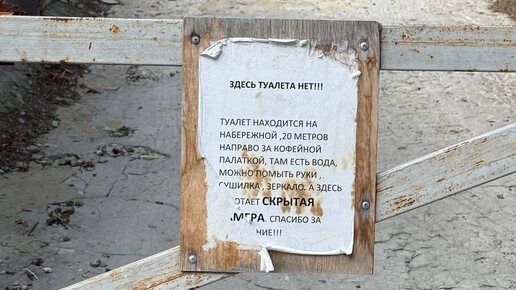 ЗДЕСЬ ТУАЛЕТА НЕТ!!!
ТУАЛЕТ НАХОДИТСЯ НА
НАБЕРЕЖНОЙ ,20 МЕТРОВ
НАПРАВО ЗА КОФЕЙНОЙ
ПАЛАТКОЙ, ТАМ ЕСТЬ ВОДА,
МОЖНО ПОМЫТЬ РУКИ ,
СУШИЛКА , ЗЕРКАЛО. А ЗДЕСЬ
СКРЫТАЯ
СПАСИБО ЗА